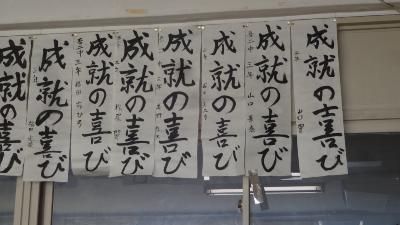 成就の喜び
成就の喜び
成就の喜び
成就の喜び
成就の喜び
成就の喜び
成就の喜び
成就の喜び